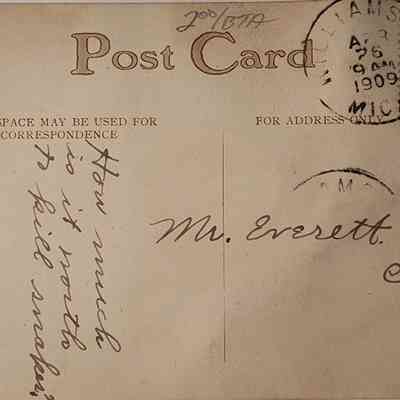 2.00/BTA
Post Card
WILLIAMS
APR
26
9 AM
1909
MICH
SPACE MAY BE USED FOR
CORRESPONDENCE
FOR ADDRESS ONLY
AMS
How much
is it worth
to kill snakes?
Mr. Everett.